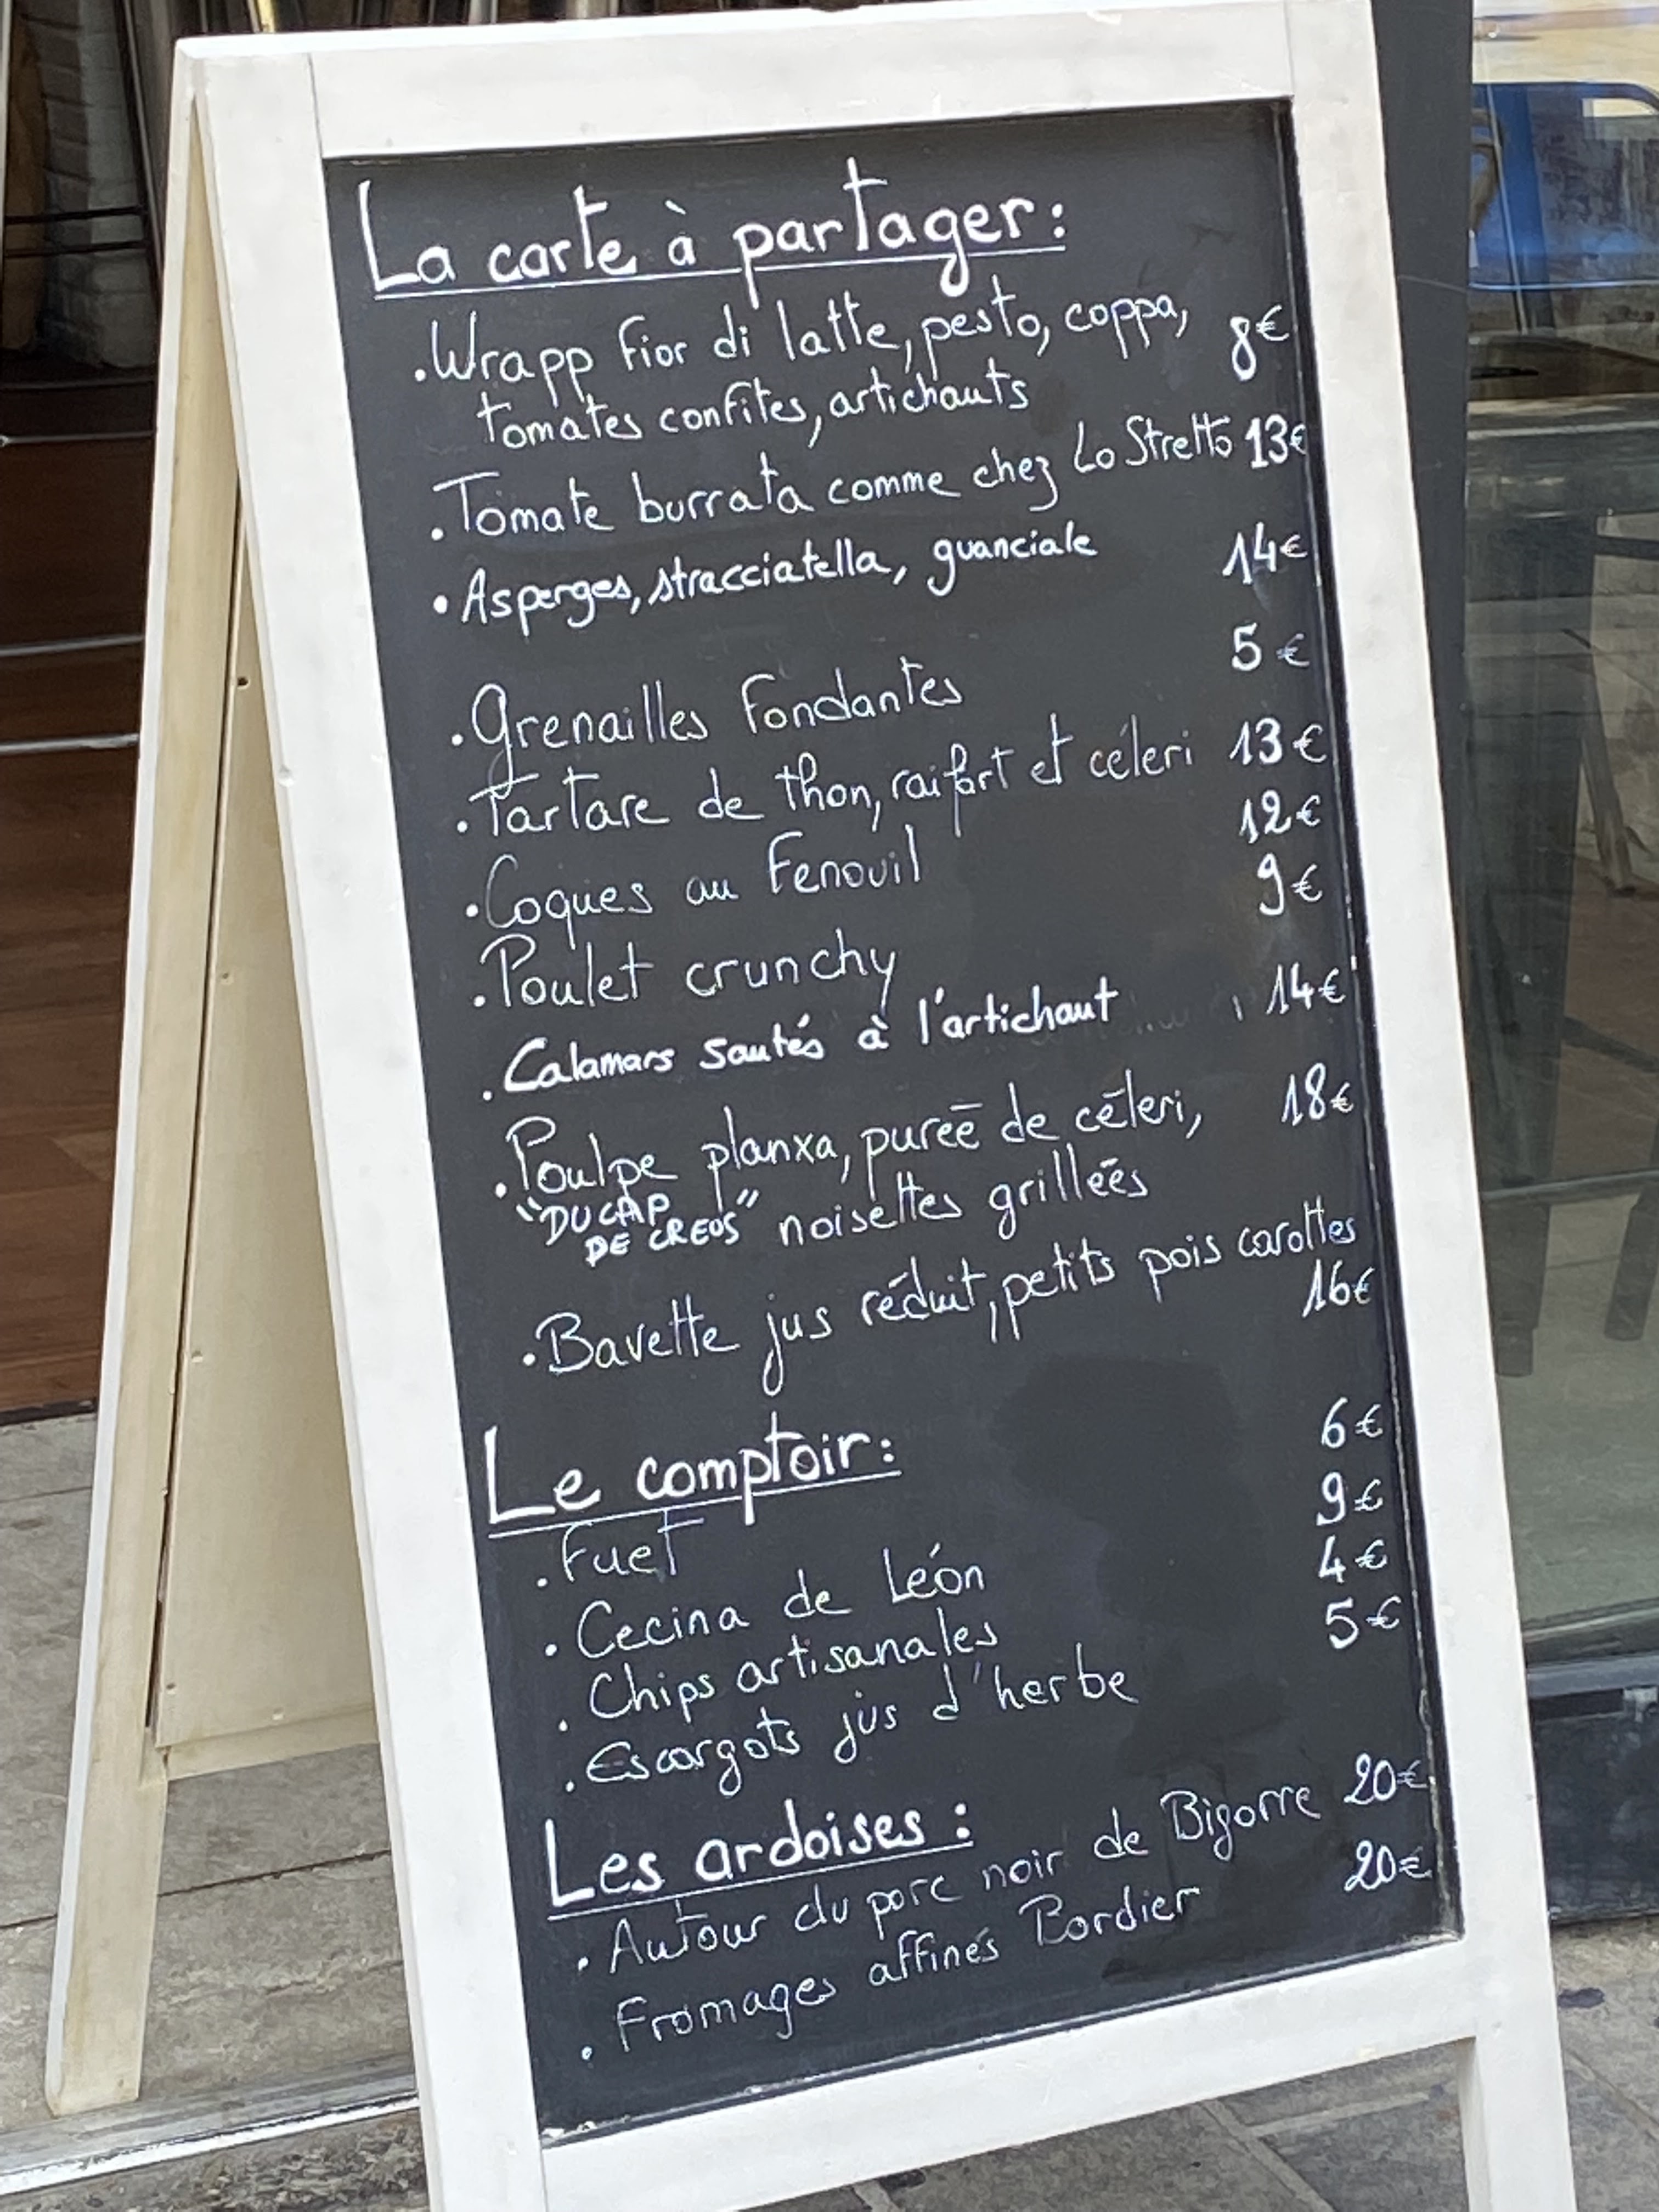 La carte à partager:
.Wrapp fior di latte, pesto, coppa, 8€
tomates confites, artichauts
.Tomate burrata comme chez Lo Stretto 13€
.Asperges, stracciatella, guanciale 14€
.Grenailles fondantes 5€
.Tartare de thon, raifort et céleri 13€
.Coques au Fenouil 12€
.Poulet crunchy 9€
.Calamars sautés à l'artichaut 14€
.Poulpe planxa, purée de céleri, 18€
"DU CAP
DE CREUS" noisettes grillées
.Bavette jus réduit, petits pois carottes
16€
Le comptoir:
.Fuet 6€
.Cecina de Léón 9€
.Chips artisanales 4€
.Escargots jus d'herbe 5€
Les ardoises:
.Autour du porc noir de Bigorre 20€
.Fromages affinés Bordier 20€